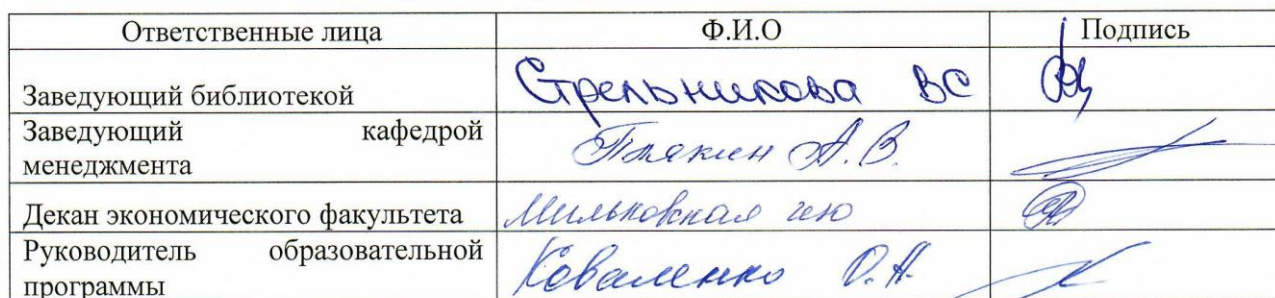 Ответственные лица Ф.И.О Подпись
Заведующий библиотекой Стрельникова ВС
Заведующий кафедрой
менеджмента А.В.
Декан экономического факультета Мильковская
Руководитель образовательной
программы Коваленко О.А.